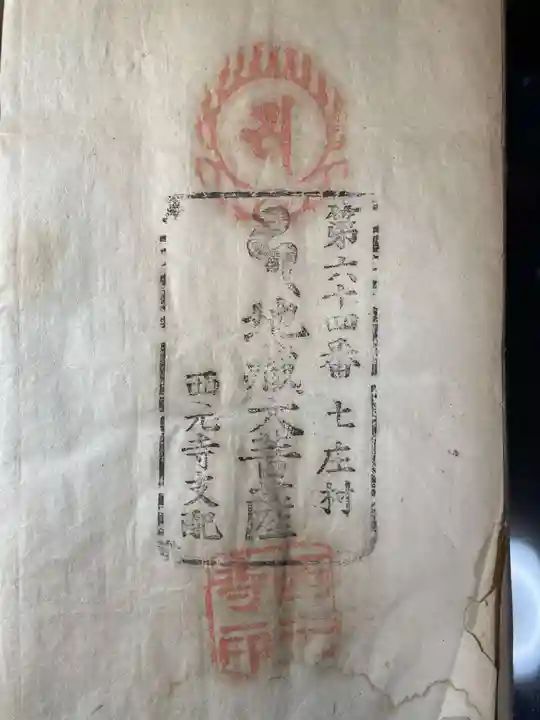 第六十四番 七庄村
地蔵大菩薩
西元寺支配